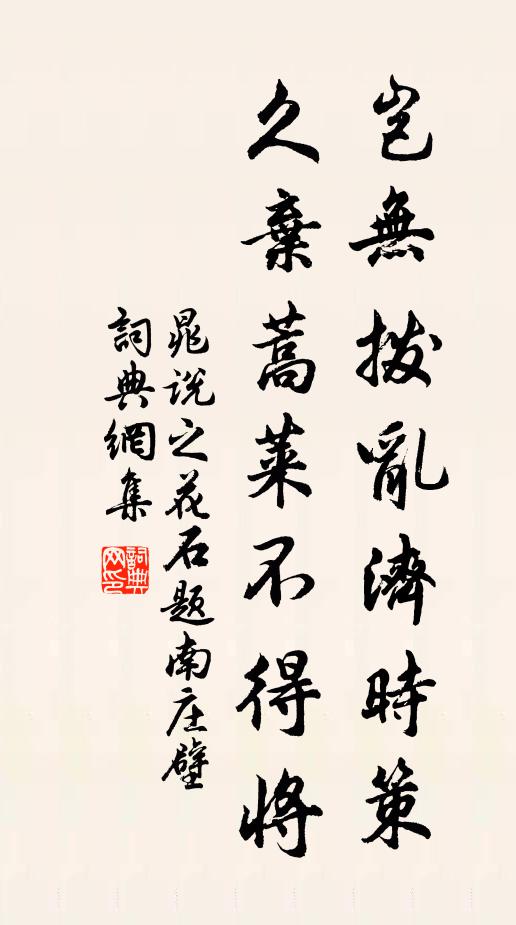 豈無撥亂濟時策
久棄蒿萊不得將
晁说之花石题南庄壁
詞典網集
詞典网印